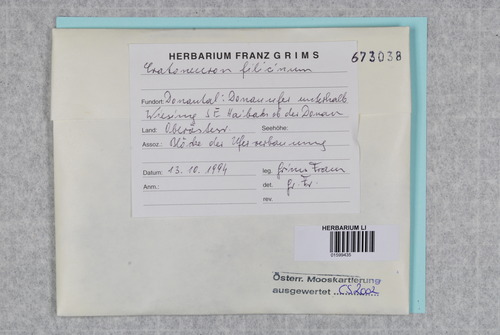 HERBARIUM FRANZ GRIMS
673038
Cratoneuron filicinum
Fundort: Donautal: Donauufer unterhalb
Wiesing SE Haibach ob der Donau
Land: Oberösterr. Seehöhe:
Assoz.: Blöcke der Uferverbauung
Datum: 13. 10. 1994 leg. Grims Franz
Anm.: det. Gr. Fr.
rev.
HERBARIUM LI
01599435
Österr. Mooskartierung
ausgewertet CS 2002